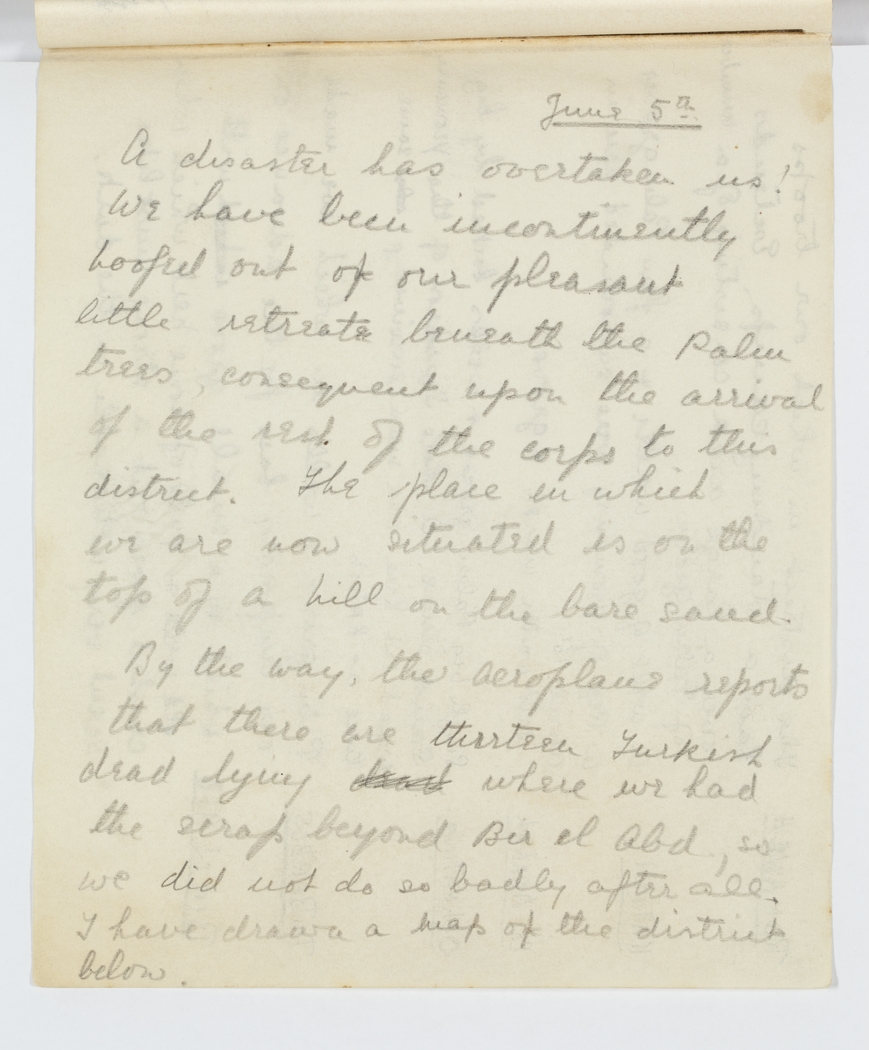 June 5th
A disaster has overtaken us!
We have been incontinently
hoofed out of our pleasant
little retreate beneath the Palm
trees, consequent upon the arrival
of the rest of the corps to this
district. The place in which
we are now situated is on the
top of a hill on the bare sand.
By the way, the aeroplane reports
that there are thirteen Turkish
dead lying dead where we had
the scrap beyond Bir el Abd, so
we did not do so badly after all.
I have drawn a map of the district
below.